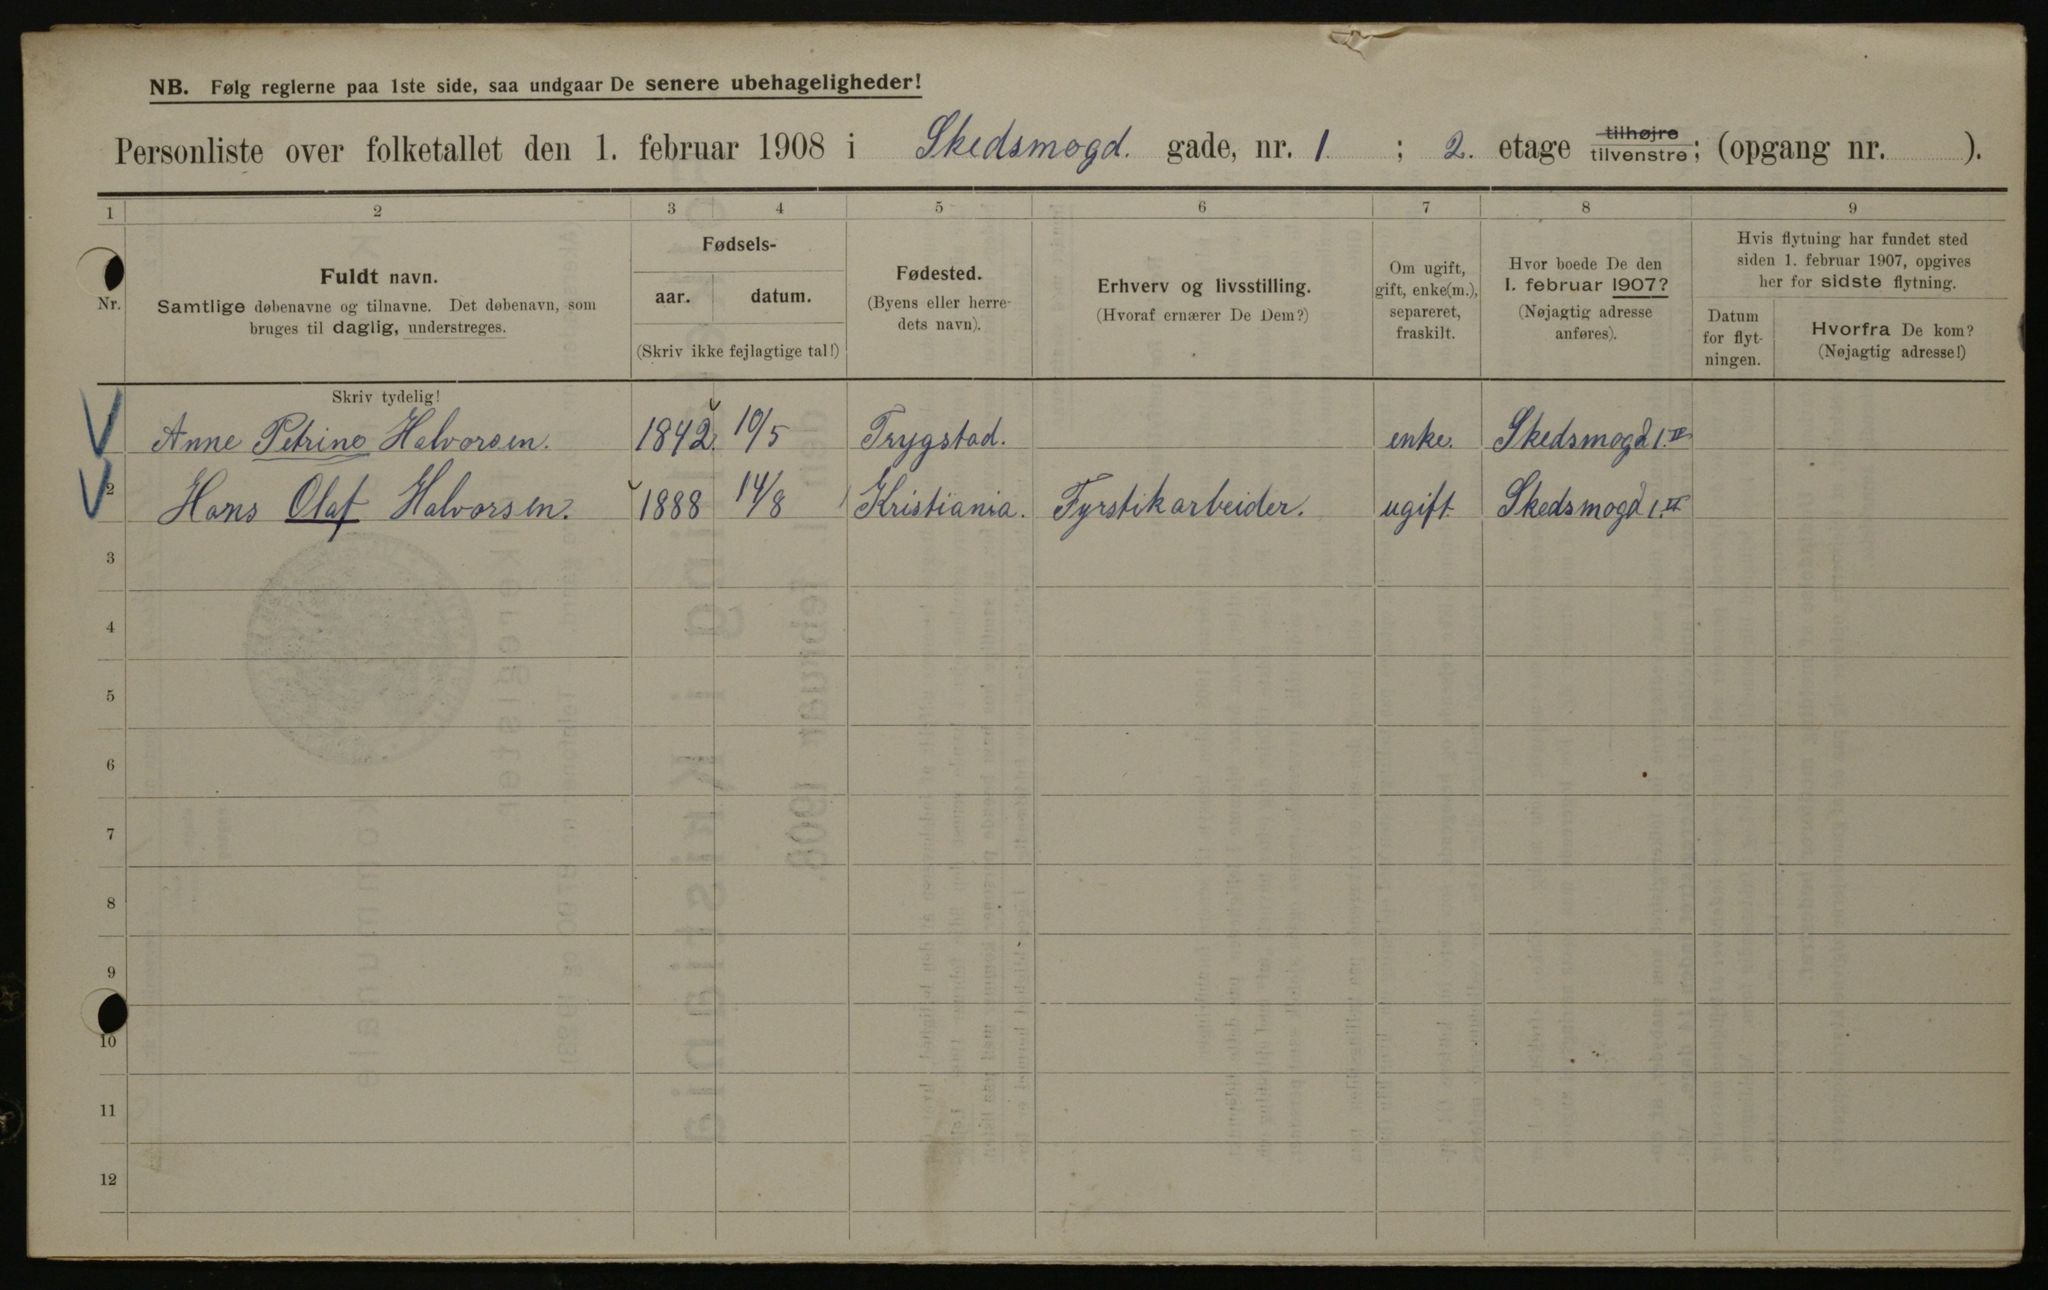 NB. Følg reglerne paa 1ste side, saa undgaar De senere ubehageligheder!
Personliste over folketallet den 1. februar 1908 i Skedsmogd. gade, nr. 1 ; 2. etage tilhøjre tilvenstre; (opgang nr. ).
1 2 3 4 5 6 7 8 9
Nr.
Fuldt navn.
Samtlige døbenavne og tilnavne. Det døbenavn, som
bruges til daglig, understreges.
Fødsels-
aar. datum.
(Skriv ikke fejlagtige tal!)
Fødested.
(Byens eller herre-
dets navn).
Erhverv og livsstilling.
(Hvoraf ernærer De Dem?)
Om ugift,
gift, enke(m.),
separeret,
fraskilt.
Hvor boede De den
1. februar 1907?
(Nøjagtig adresse
anføres).
Hvis flytning har fundet sted
siden 1. februar 1907, opgives
her for sidste flytning.
Datum
for flyt-
ningen.
Hvorfra De kom?
(Nøjagtig adresse!)
Skriv tydelig!
1 Anne Petrine Halvorsen. 1842. 10/5 Trygstad. enke. Skedsmogd 1.II
2 Hans Olaf Halvorsen. 1888 14/8 Kristiania. Fyrstikarbeider. ugift. Skedsmogd 1.II
3
4
5
6
7
8
9
10
11
12